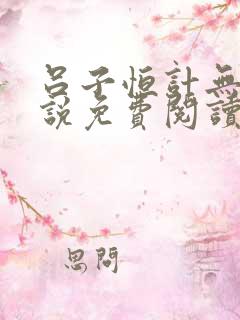 呂子恒計無
說免費閱讀
思問